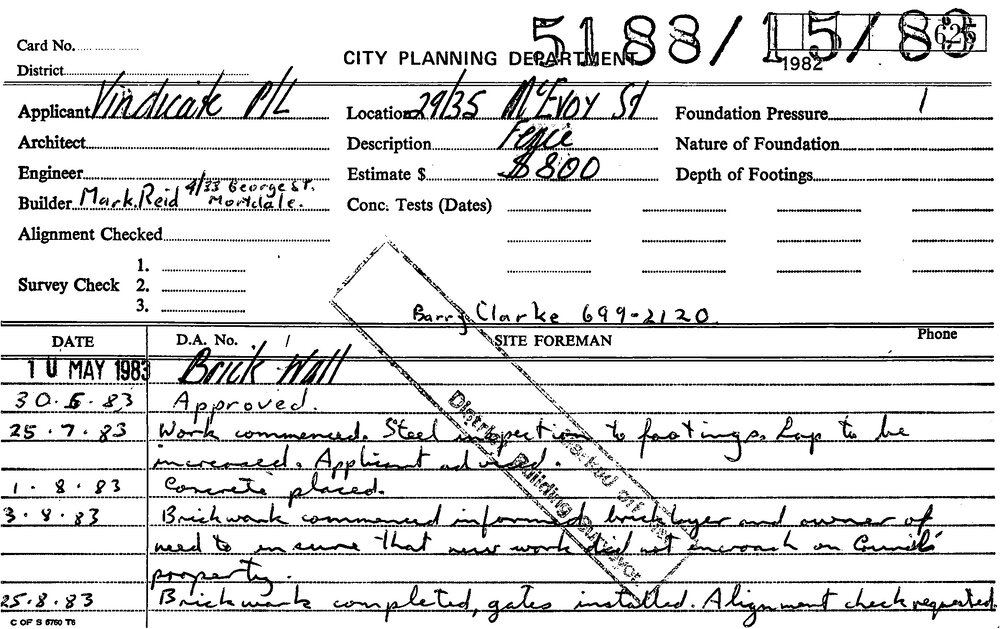 5188/15/83
625
Card No.
CITY PLANNING DEPARTMENT
1982
District
Applicant Vindicate P/L
Location 29/35 McEvoy St
Foundation Pressure
Architect
Description Fence
Nature of Foundation
Engineer
Estimate $ $800
Depth of Footings
Builder Mark Reid 4/33 George St. Mortdale.
Conc. Tests (Dates)
Alignment Checked
1.
Survey Check 2.
3.
Barry Clarke 699-2120
DATE D.A. No. / SITE FOREMAN Phone
10 MAY 1983 Brick Wall
30.5.83 Approved.
25.7.83 Work commenced. Steel inspection to footings. Lap to be
increased. Applicant advised.
1.8.83 Concrete placed.
3.8.83 Brickwork commenced informed bricklayer and owner of
need to ensure that new work did not encroach on Council's
property.
25.8.83 Brickwork completed, gates installed. Alignment check requested
District Building Surveyor.
C OF S 5760 T6